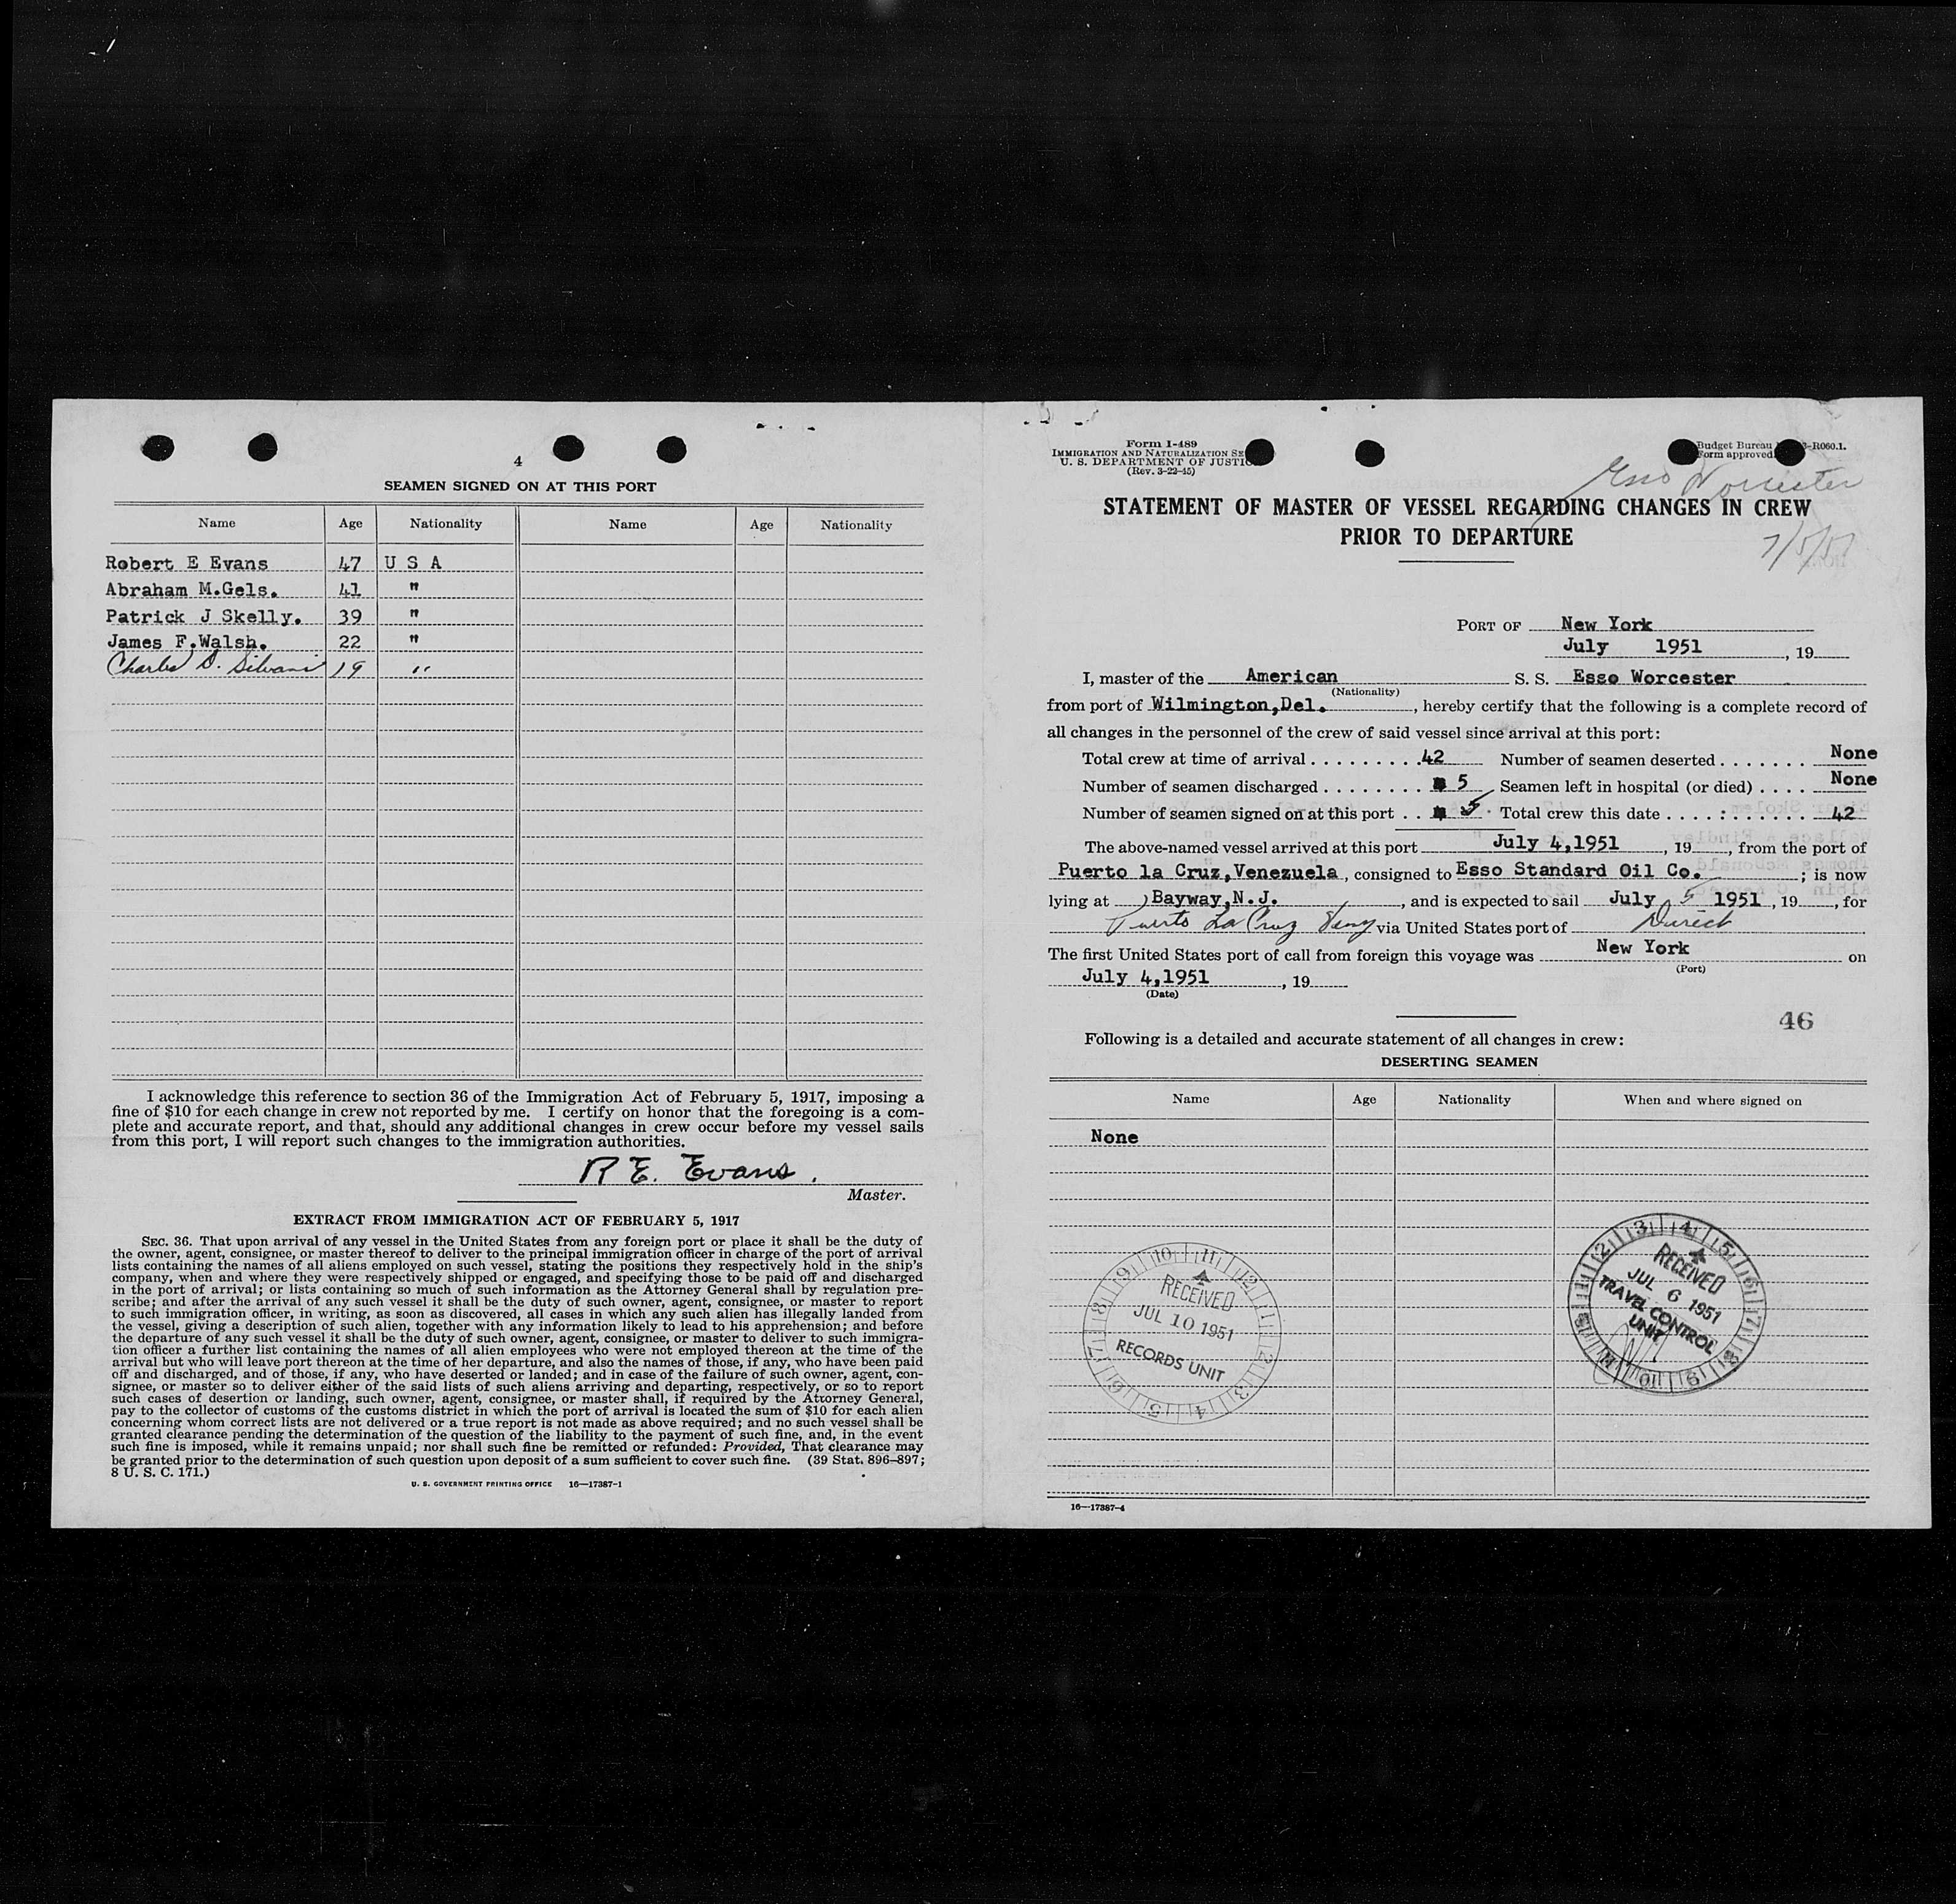 4
SEAMEN SIGNED ON AT THIS PORT
Name Age Nationality Name Age Nationality
Robert E Evans 47 U S A
Abraham M.Gels. 41 "
Patrick J Skelly. 39 "
James F.Walsh. 22 "
Charles D. Silvani 19 "
I acknowledge this reference to section 36 of the Immigration Act of February 5, 1917, imposing a
fine of $10 for each change in crew not reported by me. I certify on honor that the foregoing is a com-
plete and accurate report, and that, should any additional changes in crew occur before my vessel sails
from this port, I will report such changes to the immigration authorities.
R E. Evans.
Master.
EXTRACT FROM IMMIGRATION ACT OF FEBRUARY 5, 1917
SEC. 36. That upon arrival of any vessel in the United States from any foreign port or place it shall be the duty of
the owner, agent, consignee, or master thereof to deliver to the principal immigration officer in charge of the port of arrival
lists containing the names of all aliens employed on such vessel, stating the positions they respectively hold in the ship's
company, when and where they were respectively shipped or engaged, and specifying those to be paid off and discharged
in the port of arrival; or lists containing so much of such information as the Attorney General shall by regulation pre-
scribe; and after the arrival of any such vessel it shall be the duty of such owner, agent, consignee, or master to report
to such immigration officer, in writing, as soon as discovered, all cases in which any such alien has illegally landed from
the vessel, giving a description of such alien, together with any information likely to lead to his apprehension; and before
the departure of any such vessel it shall be the duty of such owner, agent, consignee, or master to deliver to such immigra-
tion officer a further list containing the names of all alien employees who were not employed thereon at the time of the
arrival but who will leave port thereon at the time of her departure, and also the names of those, if any, who have been paid
off and discharged, and of those, if any, who have deserted or landed; and in case of the failure of such owner, agent, con-
signee, or master so to deliver either of the said lists of such aliens arriving and departing, respectively, or so to report
such cases of desertion or landing, such owner, agent, consignee, or master shall, if required by the Attorney General,
pay to the collector of customs of the customs district in which the port of arrival is located the sum of $10 for each alien
concerning whom correct lists are not delivered or a true report is not made as above required; and no such vessel shall be
granted clearance pending the determination of the question of the liability to the payment of such fine, and, in the event
such fine is imposed, while it remains unpaid; nor shall such fine be remitted or refunded: Provided, That clearance may
be granted prior to the determination of such question upon deposit of a sum sufficient to cover such fine. (39 Stat. 896–897;
8 U. S. C. 171.)
U. S. GOVERNMENT PRINTING OFFICE 16—17387-1
Form I-489
IMMIGRATION AND NATURALIZATION SE
U. S. DEPARTMENT OF JUSTIC
(Rev. 3-22-45)
Budget Bureau 3-R060.1.
Form approved
Esso Worcester
7/5/51
STATEMENT OF MASTER OF VESSEL REGARDING CHANGES IN CREW
PRIOR TO DEPARTURE
PORT OF New York
July 1951, 19
I, master of the American S. S. Esso Worcester
(Nationality)
from port of Wilmington,Del., hereby certify that the following is a complete record of
all changes in the personnel of the crew of said vessel since arrival at this port:
Total crew at time of arrival . . . . . . . . . 42 Number of seamen deserted . . . . . . . None
Number of seamen discharged . . . . . . . . 5 Seamen left in hospital (or died) . . . . None
Number of seamen signed on at this port . . 5 Total crew this date . . . . : . . . . . . . 42
The above-named vessel arrived at this port July 4,1951, 19, from the port of
Puerto la Cruz,Venezuela, consigned to Esso Standard Oil Co. ; is now
lying at Bayway,N.J., and is expected to sail July 5 1951, 19, for
Puerto La Cruz Venz via United States port of Direct
The first United States port of call from foreign this voyage was New York on
(Port)
July 4,1951, 19
(Date)
46
Following is a detailed and accurate statement of all changes in crew:
DESERTING SEAMEN
Name Age Nationality When and where signed on
None
RECEIVED
JUL 10 1951
RECORDS UNIT
RECEIVED
JUL 6 1951
TRAVEL CONTROL
UNIT
16—17387-4